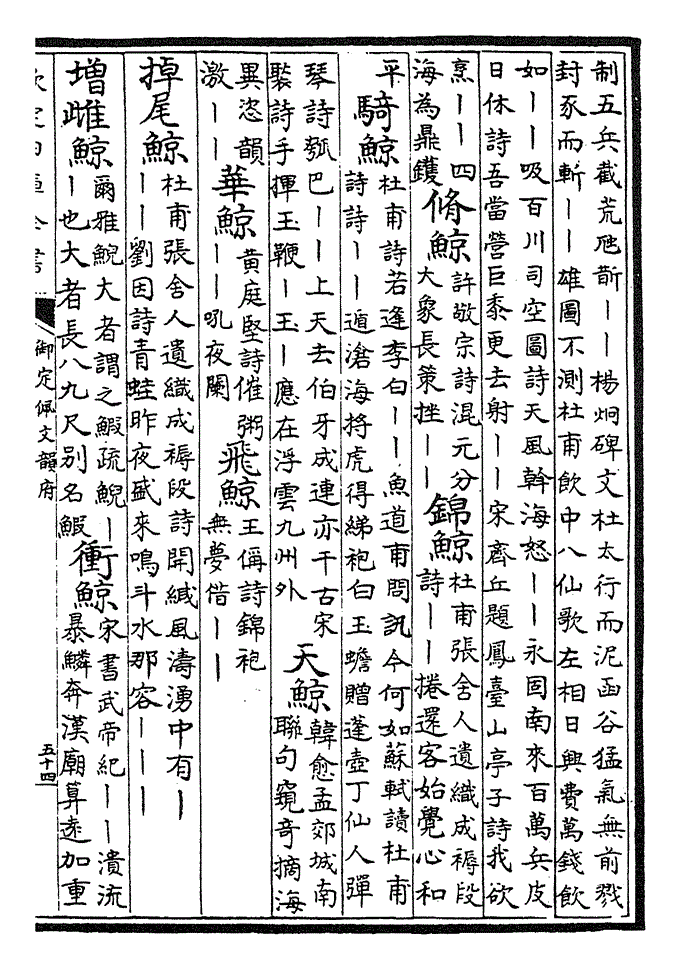 制五兵截荒虺斮――楊炯碑文杜太行而泥函谷猛氣無前戮
封豕而斬――雄圖不測杜甫飲中八仙歌左相日興費萬錢飲
如――吸百川司空圖詩天風幹海怒――永固南來百萬兵皮
日休詩吾當營巨黍更去射――宋齊丘題鳳臺山亭子詩我欲
烹――四海為鼎鑊 脩鯨 許敬宗詩混元分大象長策挫―― 錦鯨 杜甫張舍人遺織成褥段詩――捲還客始覺心和
平 騎鯨 杜甫詩若逢李白――魚道甫問訊今何如蘇軾讀杜甫詩詩――遁滄海捋虎得綈袍白玉蟾贈蓬壺丁仙人彈
琴詩瓠巴――上天去伯牙成連亦千古宋褧詩手揮玉鞭―玉―應在浮雲九州外 天鯨 韓愈孟郊城南聯句窺奇摘海
異恣韻激―― 華鯨 黄庭堅詩催粥――吼夜闌 飛鯨 王偁詩錦袍無夢借――
掉尾鯨 杜甫張舍人遺織成褥段詩開緘風濤湧中有―――劉因詩青蛙昨夜盛來鳴斗水那容―――
増雌鯨 爾雅鯢大者謂之鰕疏鯢――也大者長八九尺别名鰕 衝鯨 宋書武帝紀――潰流暴鱗奔漢廟算遠加重
欽定四庫全書
御定佩文韻府
五十四